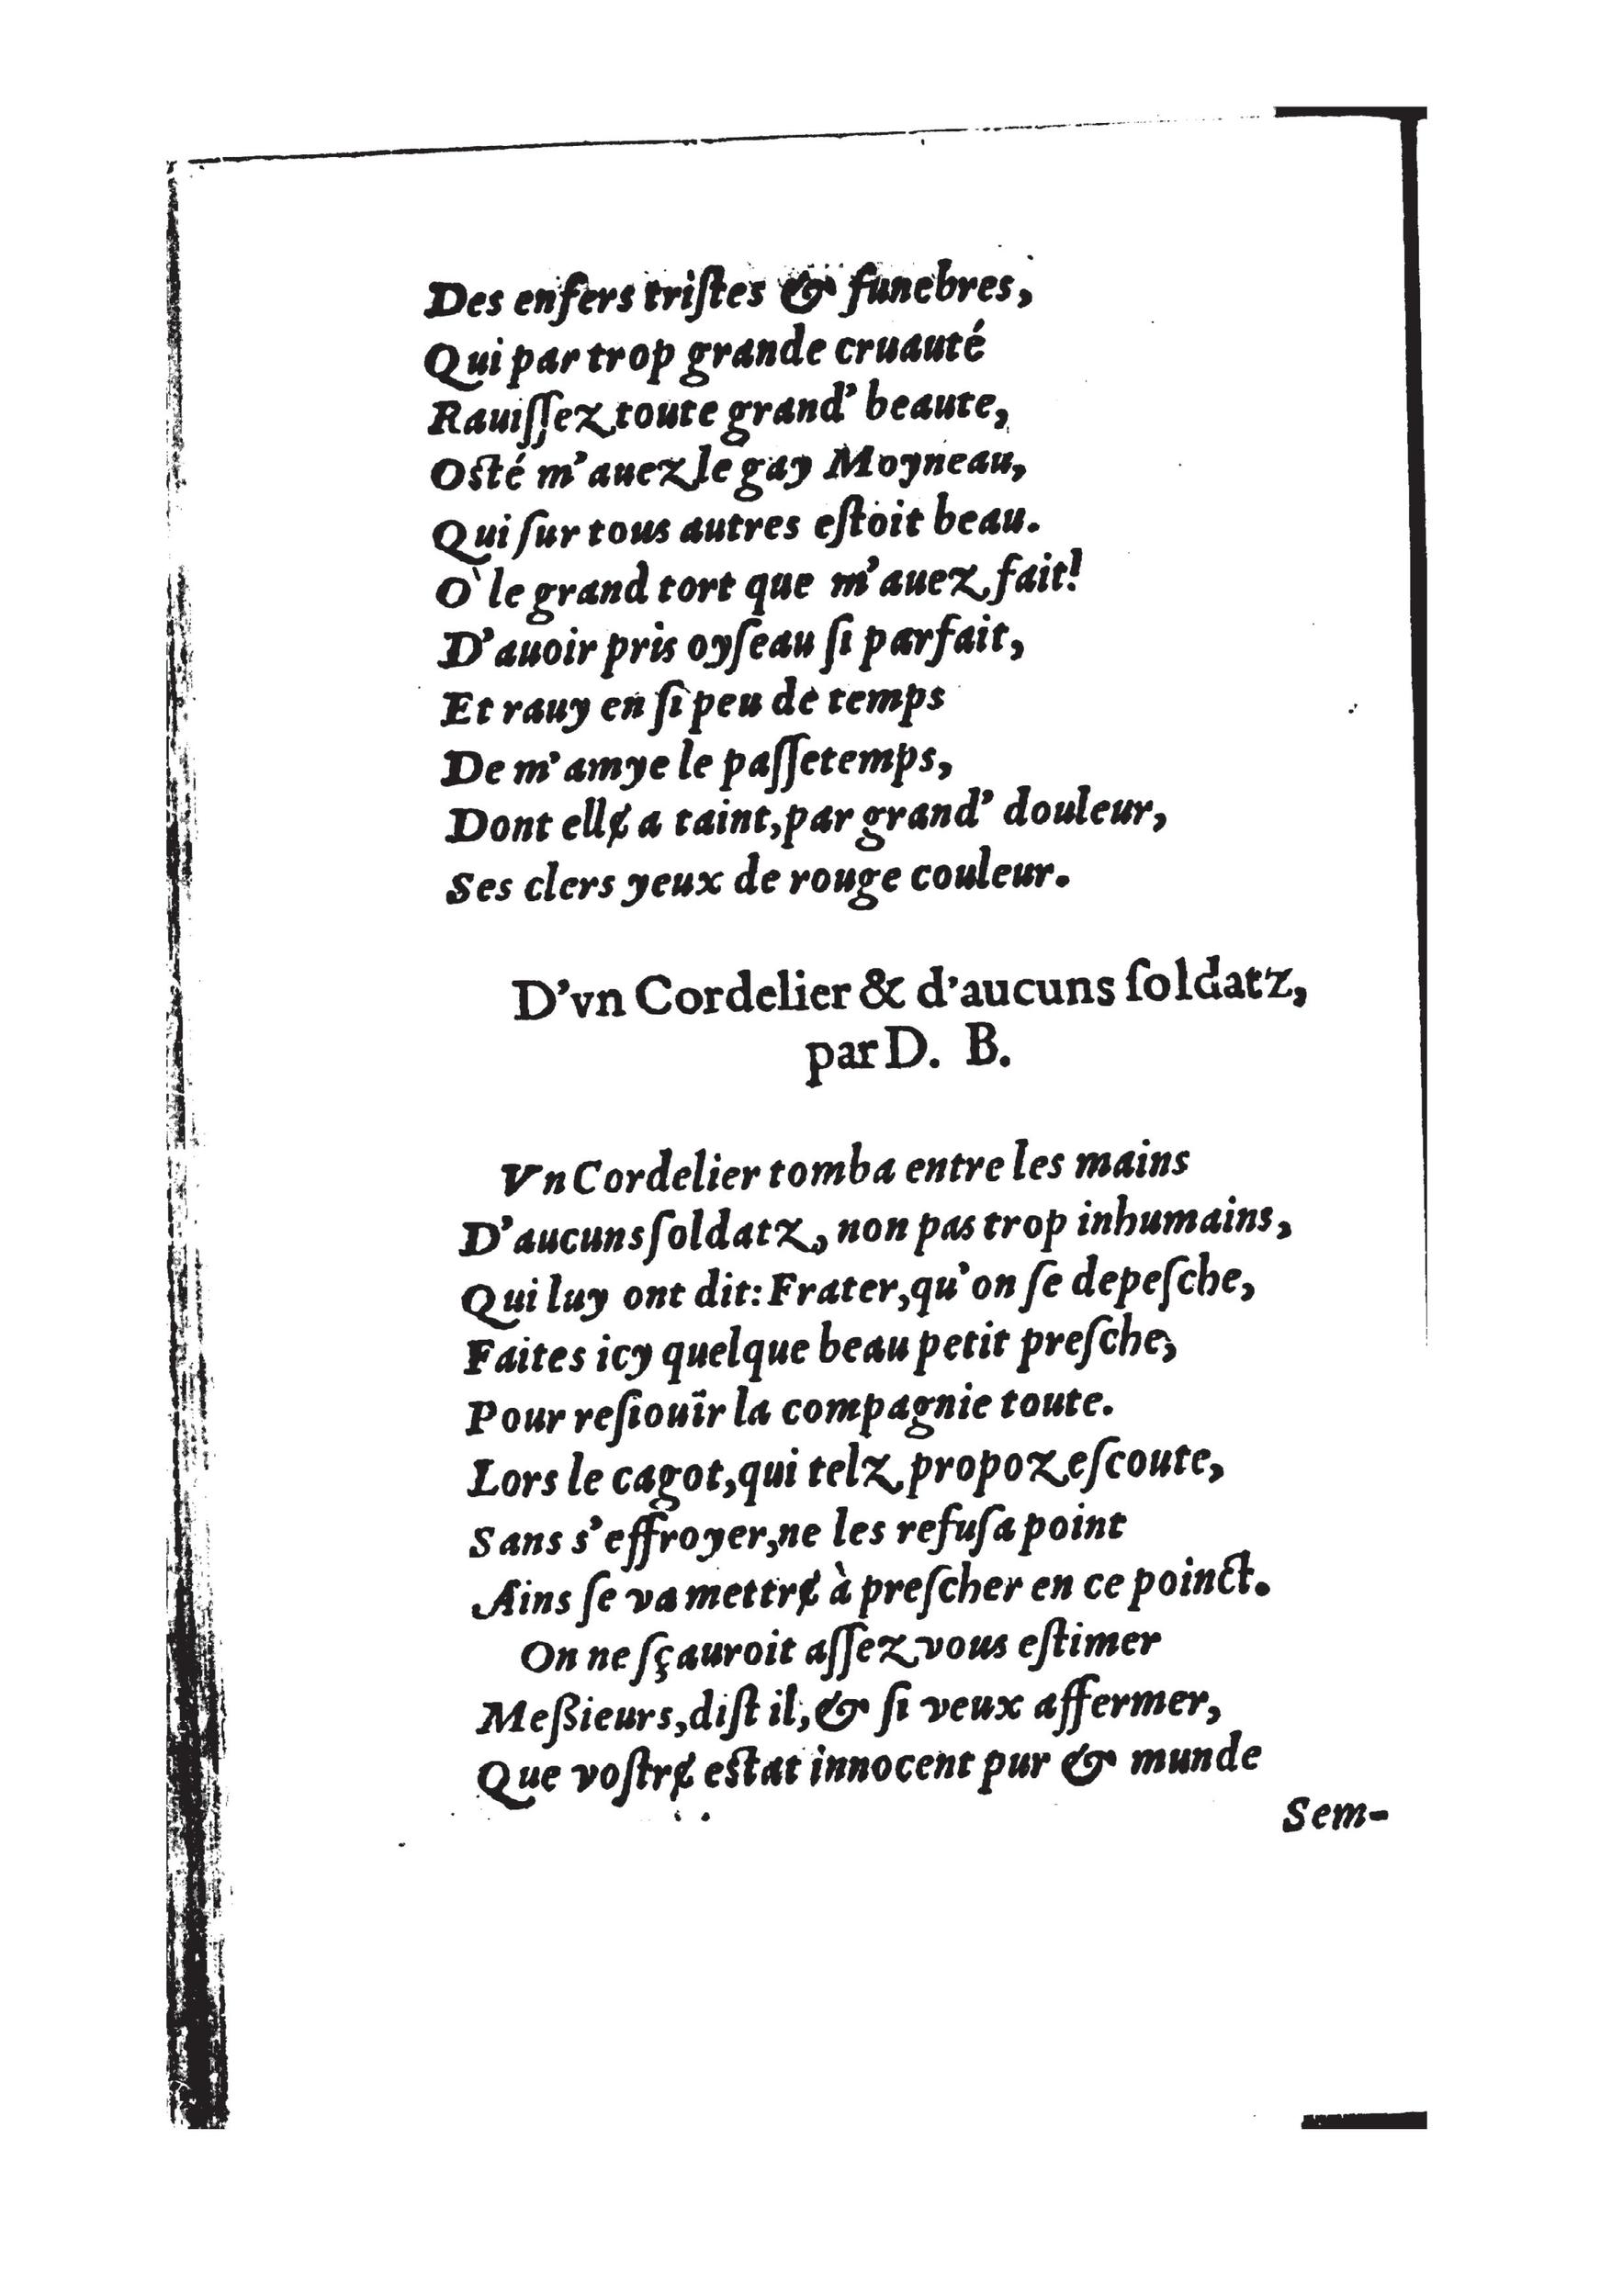 Des enfers triſtes & funebres,
Qui par trop grande cruauté
Rauiſſez toute grand' beaute,
Osté m'auez le gay Moyneau,
Qui ſur tous autres eſtoit beau.
O` le grand tort que m'auez fait!
D'auoir pris oyſeau ſi parfait,
Et rauy en ſi peu de temps
De m'amye le paſſetemps,
Dont ellɇ a taint, par grand' douleur,
Ses clers yeux de rouge couleur.
D'vn Cordelier & d'aucuns ſoldatz,
par D. B.
Vn Cordelier tomba entre les mains
D'aucuns ſoldatz, non pas trop inhumains,
Qui luy ont dit: Frater, qu'on ſe depeſche,
Faites icy quelque beau petit preſche,
Pour reſiouïr la compagnie toute.
Lors le cagot, qui telz propoz eſcoute,
Sans s'effroyer, ne les refuſa point
Ains ſe va mettrɇ à preſcher en ce poinct.
On ne ſçauroit aſſez vous eſtimer
Meßieurs, diſt il, & ſi veux affermer,
Que voſtrɇ estat innocent pur & munde
Sem-